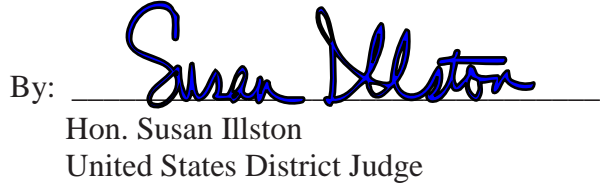 By: Susan Illston
Hon. Susan Illston
United States District Judge